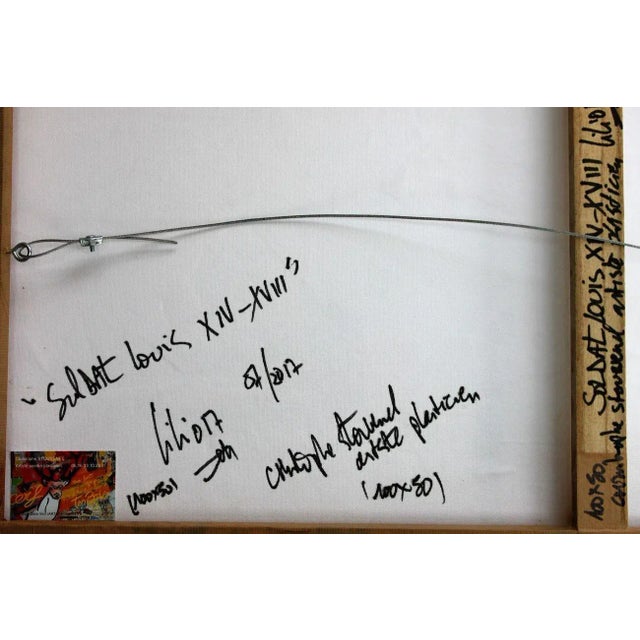 "Soldat Louis XIV-XVIII"
07/2017
lilio17
(100x50)
Christophe Stouvenel
artiste plasticien
(100x50)
100x50 Soldat Louis XIV-XVIII lilio
Christophe Stouvenel artiste plasticien